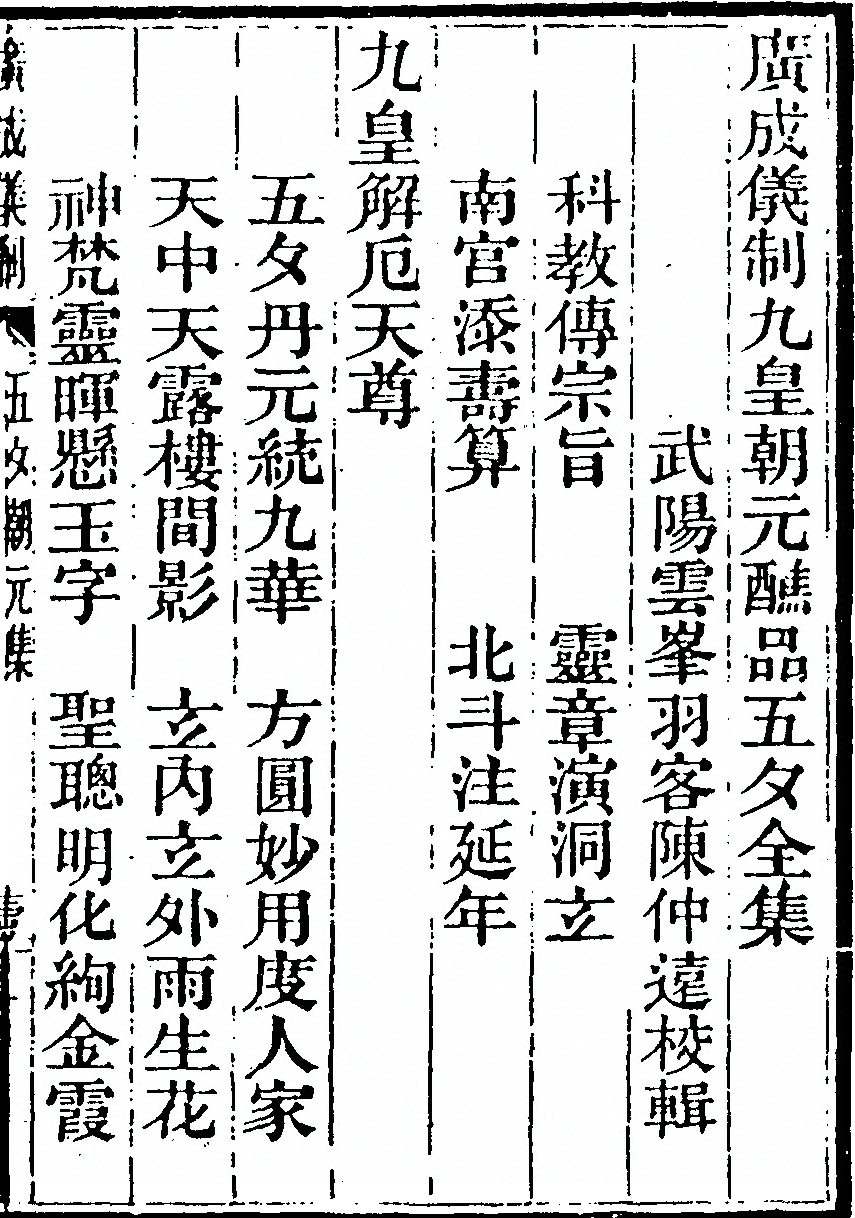 廣成儀制九皇朝元醮品五夕全集
武陽雲峯羽客陳仲遠校輯
科教傳宗旨　靈章演洞玄
南宮添壽算　北斗注延年
九皇解厄天尊
五夕丹元統九華　方圓妙用度人家
天中天露樓間影　玄內玄外雨生花
神梵靈暉懸玉字　聖聰明化絢金霞
廣成儀制　五夕朝元集